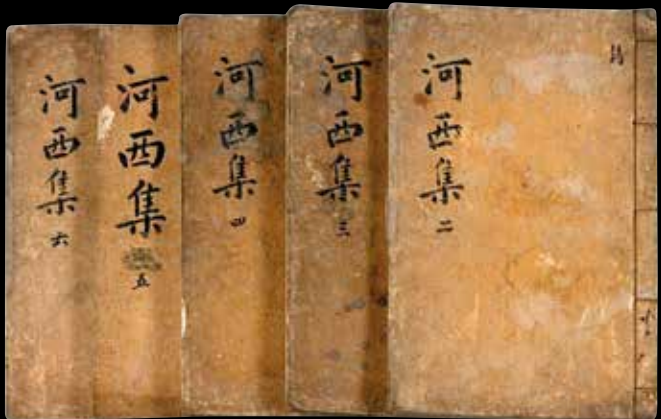 河西集 二
河西集 三
河西集 四
河西集 五
河西集 六